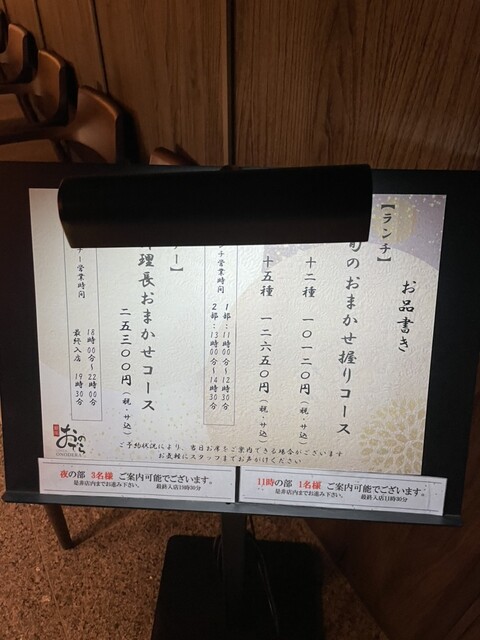 お品書き
【ランチ】
旬のおまかせ握りコース
十二種 一〇一二〇円(税・サ込)
十五種 一二六五〇円(税・サ込)
チ営業時間
1部:11時00分〜12時30分
2部:13時00分〜14時30分
ー】
理長おまかせコース
二五三〇〇円(税・サ込)
ー営業時間
18時00分〜22時00分
最終入店 19時30分
ご予約状況により、当日お席をご案内できる場合がございます
お気軽にスタッフまでお声がけください
おのでら
ONODERA
夜の部 3名様 ご案内可能でございます。
是非店内までお進み下さい。 最終入店19時30分
11時の部 1名様 ご案内可能でございます。
是非店内までお進み下さい。 最終入店11時30分